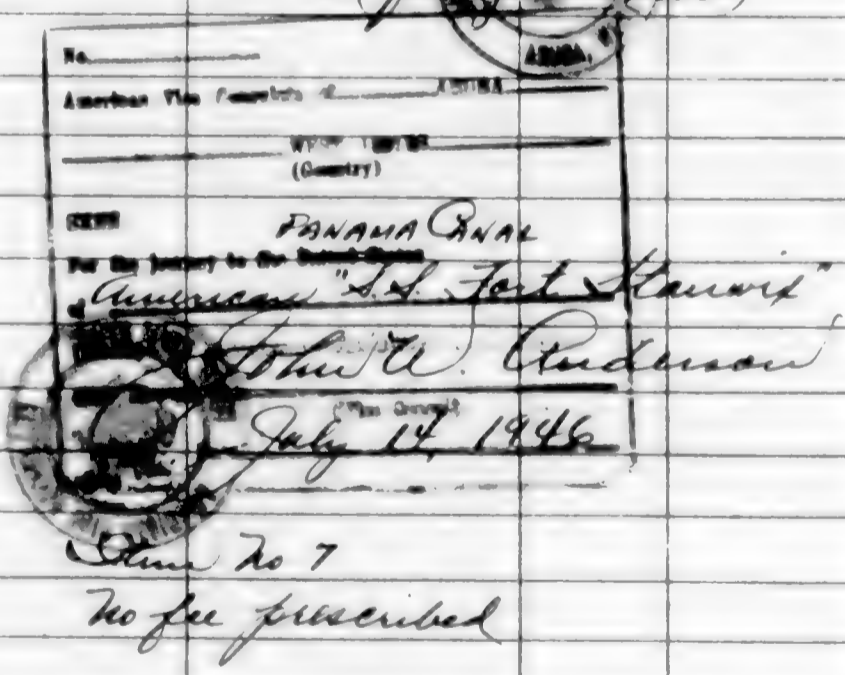 ARUBA,
No.
American Vice Consulate at ARUBA
WEST INDIES
(Country)
SEEN PANAMA CANAL
For the journey to the United States
of American "S.S. Fort Stanwix"
John W. Anderson
(Vice Consul)
July 14, 1946
No 7
No fee prescribed